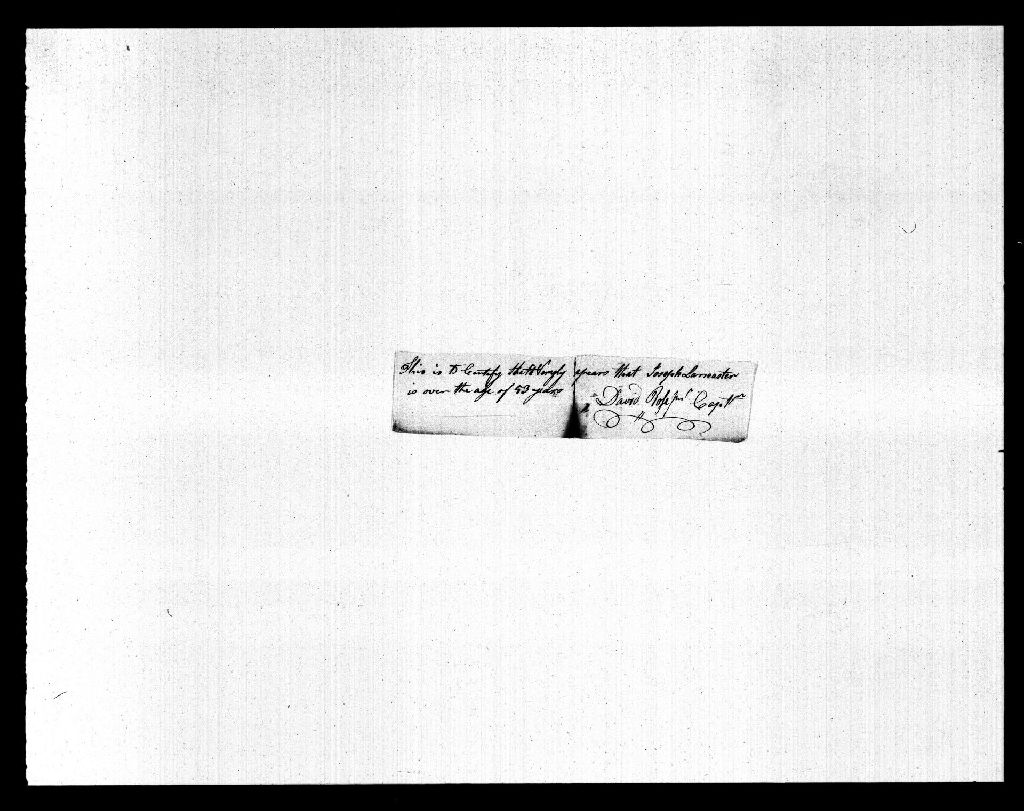 This is to Certify that it appears that Joseph Lamaster
is over the age of 53 years
David Ross Junr Captn